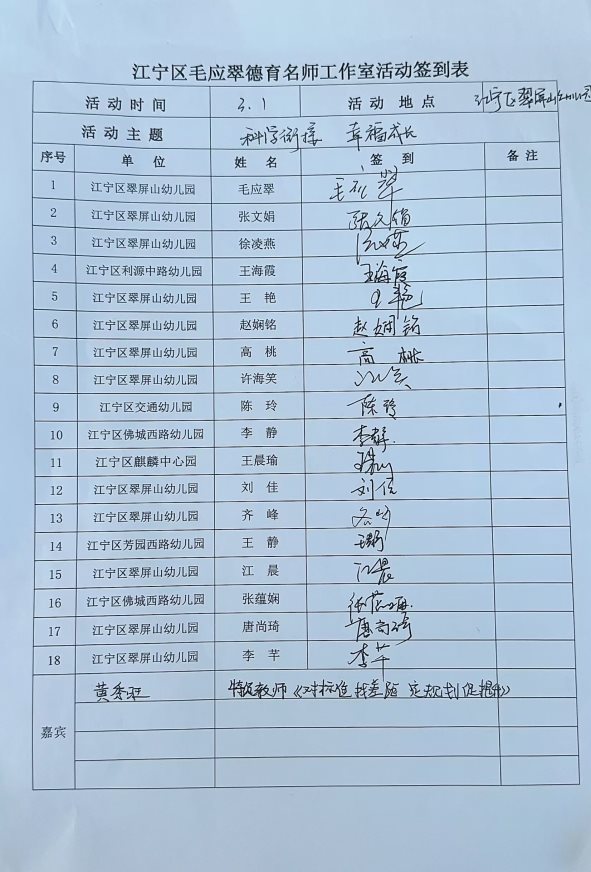 江宁区毛应翠德育名师工作室活动签到表
活动时间 3.1 活动地点 江宁区翠屏山幼儿园
活动主题 科学衔接 幸福成长
序号 单位 姓名 签到 备注
1 江宁区翠屏山幼儿园 毛应翠 毛应翠
2 江宁区翠屏山幼儿园 张文娟 张文娟
3 江宁区翠屏山幼儿园 徐凌燕
4 江宁区利源中路幼儿园 王海霞 王海霞
5 江宁区翠屏山幼儿园 王艳 王艳
6 江宁区翠屏山幼儿园 赵娴铭 赵娴铭
7 江宁区翠屏山幼儿园 高桃 高桃
8 江宁区翠屏山幼儿园 许海笑
9 江宁区交通幼儿园 陈玲 陈玲
10 江宁区佛城西路幼儿园 李静 李静
11 江宁区麒麟中心园 王晨瑜
12 江宁区翠屏山幼儿园 刘佳 刘佳
13 江宁区翠屏山幼儿园 齐峰
14 江宁区芳园西路幼儿园 王静 王静
15 江宁区翠屏山幼儿园 江晨 江晨
16 江宁区佛城西路幼儿园 张蕴娴 张蕴娴
17 江宁区翠屏山幼儿园 唐尚琦 唐尚琦
18 江宁区翠屏山幼儿园 李芊 李芊
嘉宾 黄秀 特级教师《对标准 找差距 定规划 促提升》